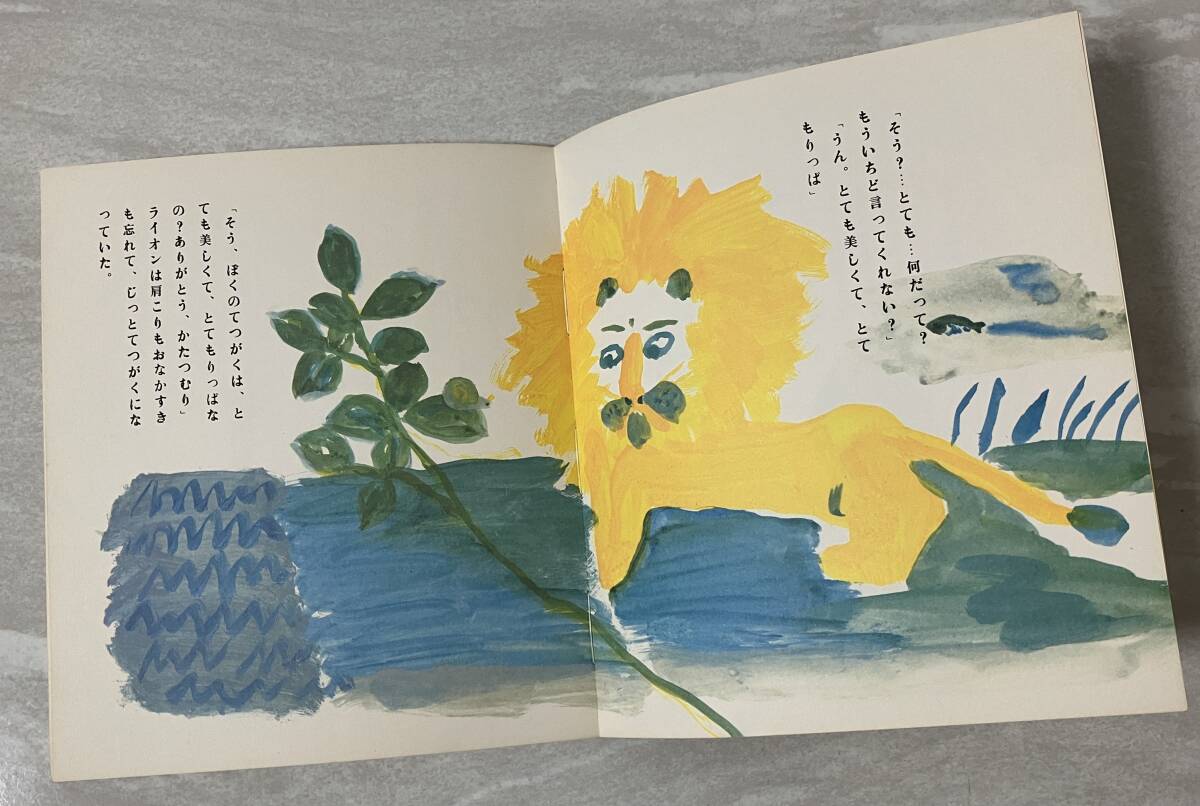 「そう?…とても…何だって?
もういちど言ってくれない?」
「うん。とても美しくて、とて
もりっぱ」
「そう、ぼくのてつがくは、と
ても美しくて、とてもりっぱな
の?ありがとう、かたつむり」
ライオンは肩こりもおなかすき
も忘れて、じっとてつがくにな
っていた。